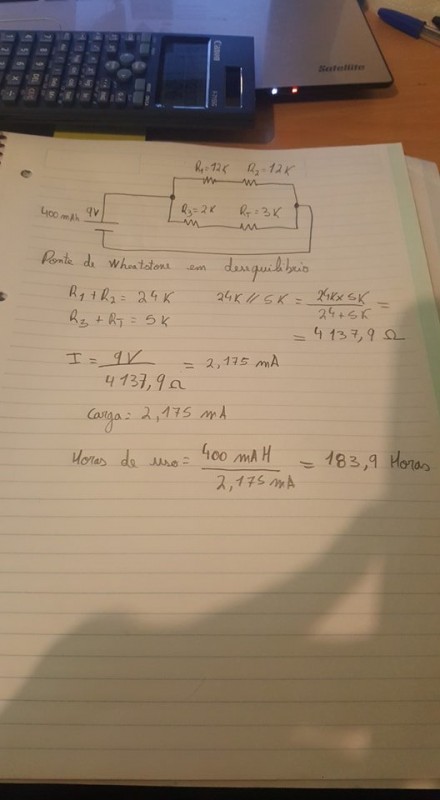 Canon
Satellite
R1=12K R2=12K
400 mAh 9V
R3=2K RT=3K
Ponte de Wheatstone em desequilibrio
R1+R2= 24K 24K // 5K = 24K×5K / 24+5K =
R3 + RT = 5K = 4137,9 Ω
I = 9V / 4137,9Ω = 2,175 mA
Carga: 2,175 mA
Horas de uso= 400 mAH / 2,175 mA = 183,9 Horas